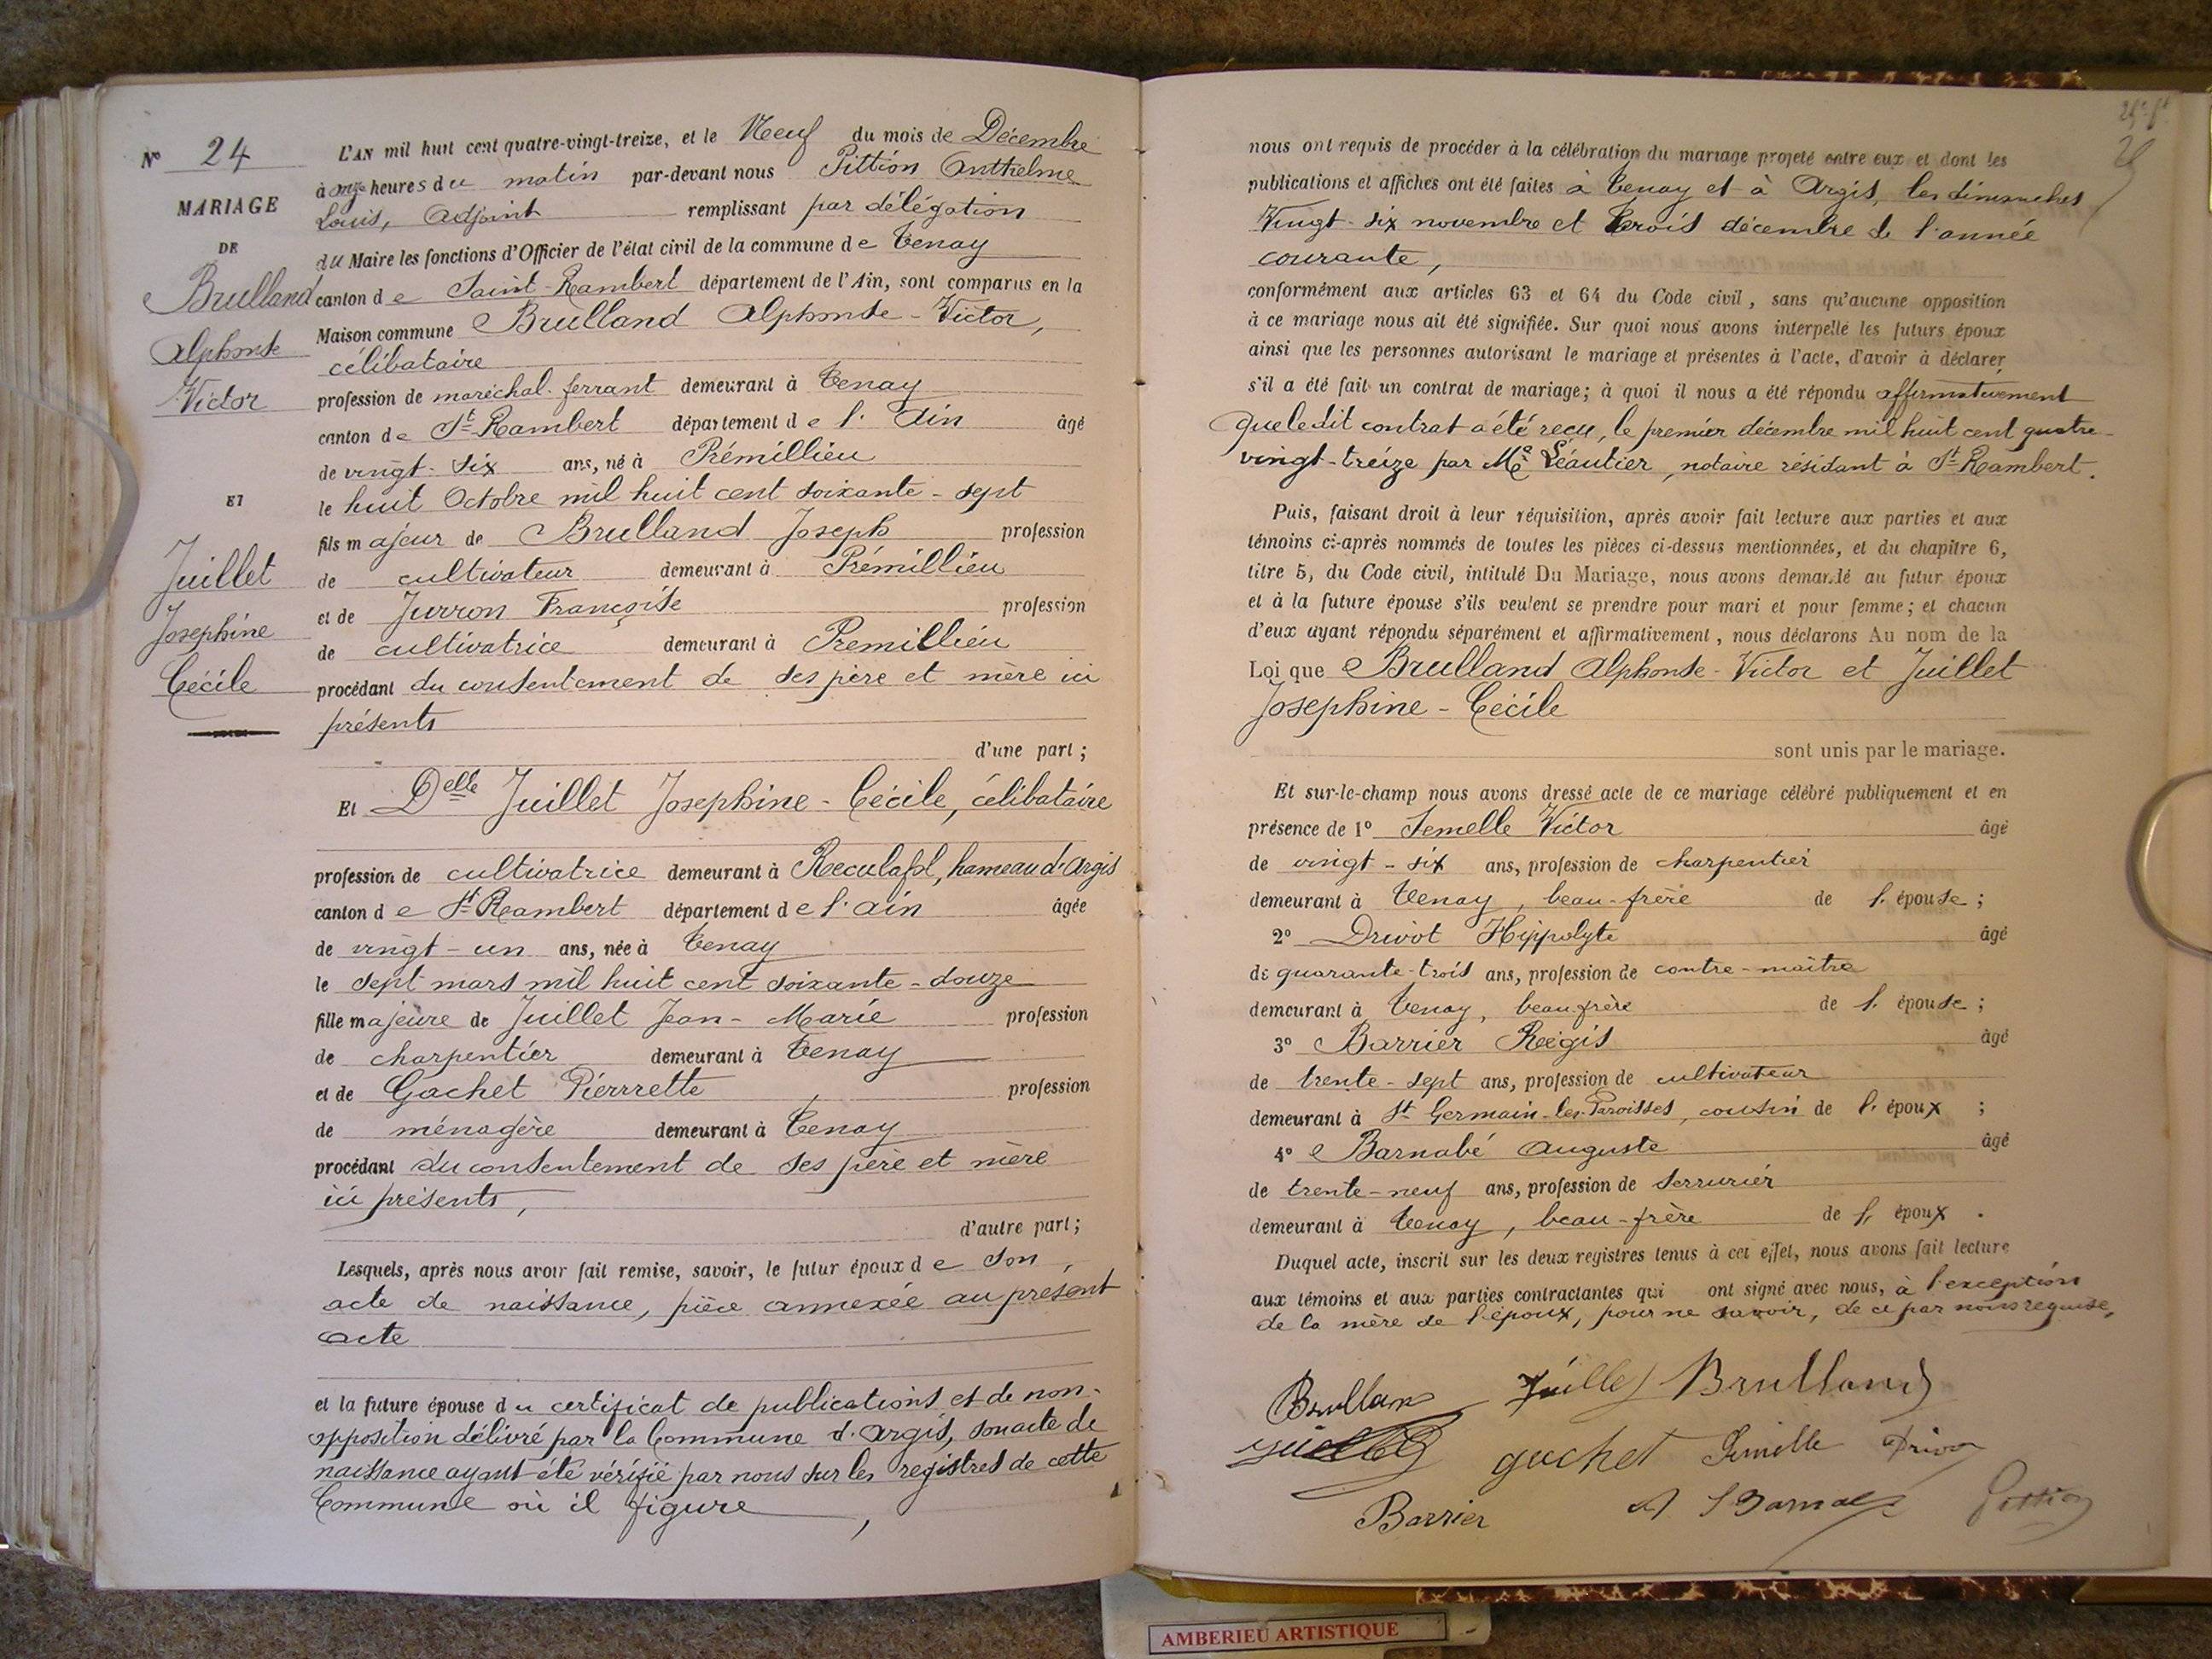 Nº 24
MARIAGE
DE
Brulland
Alphonse
Victor
ET
Juillet
Josephine
Cécile
L'AN mil huit cent quatre-vingt-treize, et le Neuf du mois de Décembre
à onze heures du matin par-devant nous Pittion Anthelme
Louis, Adjoint remplissant par délégation
du Maire les fonctions d'Officier de l'état civil de la commune de Tenay
canton de Saint-Rambert département de l'Ain, sont comparus en la
Maison commune Brulland Alphonse-Victor,
célibataire
profession de maréchal-ferrant demeurant à Tenay
canton de St Rambert département de l'Ain âgé
de vingt-six ans, né à Prémillieu
le huit Octobre mil huit cent soixante-sept
fils majeur de Brulland Joseph profession
de cultivateur demeurant à Prémillieu
et de Jurron Françoise profession
de cultivatrice demeurant à Prémillieu
procédant du consentement de ses père et mère ici
présents
d'une part;
Et Delle Juillet Josephine-Cécile, célibataire
profession de cultivatrice demeurant à Reculafol, hameau d'Argis
canton de St Rambert département de l'Ain âgée
de vingt-un ans, née à Tenay
le sept mars mil huit cent soixante-douze
fille majeure de Juillet Jean-Marie profession
de charpentier demeurant à Tenay
et de Gachet Pierrrette profession
de ménagère demeurant à Tenay
procédant du consentement de ses père et mère
ici présents,
d'autre part;
Lesquels, après nous avoir fait remise, savoir, le futur époux de son
acte de naissance, pièce annexée au présent
acte
et la future épouse du certificat de publications et de non-
opposition délivré par la Commune d'Argis, son acte de
naissance ayant été vérifié par nous sur les registres de cette
Commune où il figure,
25e ft
nous ont requis de procéder à la célébration du mariage projeté entre eux et dont les
publications et affiches ont été faites à Tenay et à Argis, les dimanches
Vingt-six novembre et trois décembre de l'année
courante,
conformément aux articles 63 et 64 du Code civil, sans qu'aucune opposition
à ce mariage nous ait été signifiée. Sur quoi nous avons interpellé les futurs époux
ainsi que les personnes autorisant le mariage et présentes à l'acte, d'avoir à déclarer,
s'il a été fait un contrat de mariage; à quoi il nous a été répondu affirmativement
que ledit contrat a été reçu, le premier décembre mil huit cent quatre-
vingt-treize par Me Léautier, notaire résidant à St Rambert.
Puis, faisant droit à leur réquisition, après avoir fait lecture aux parties et aux
témoins ci-après nommés de toutes les pièces ci-dessus mentionnées, et du chapitre 6,
titre 5, du Code civil, intitulé Du Mariage, nous avons demandé au futur époux
et à la future épouse s'ils veulent se prendre pour mari et pour femme; et chacun
d'eux ayant répondu séparément et affirmativement, nous déclarons Au nom de la
Loi que Brulland Alphonse-Victor et Juillet
Josephine-Cécile
sont unis par le mariage.
Et sur-le-champ nous avons dressé acte de ce mariage célébré publiquement et en
présence de 1º Semelle Victor âgé
de vingt-six ans, profession de charpentier
demeurant à Tenay, beau-frère de l'épouse;
2º Drivot Hippolyte âgé
de quarante-trois ans, profession de contre-maître
demeurant à Tenay, beau-frère de l'épouse;
3º Barrier Régis âgé
de trente-sept ans, profession de cultivateur
demeurant à St Germain-les-Paroisses, cousin de l'époux;
4º Barnabé Auguste âgé
de trente-neuf ans, profession de serrurier
demeurant à Tenay, beau-frère de l'époux.
Duquel acte, inscrit sur les deux registres tenus à cet effet, nous avons fait lecture
aux témoins et aux parties contractantes qui ont signé avec nous, à l'exception
de la mère de l'époux, pour ne savoir, de ce par nous requise,
Juillet Brulland
gachet
Barrier
Pittion
AMBERIEU ARTISTIQUE